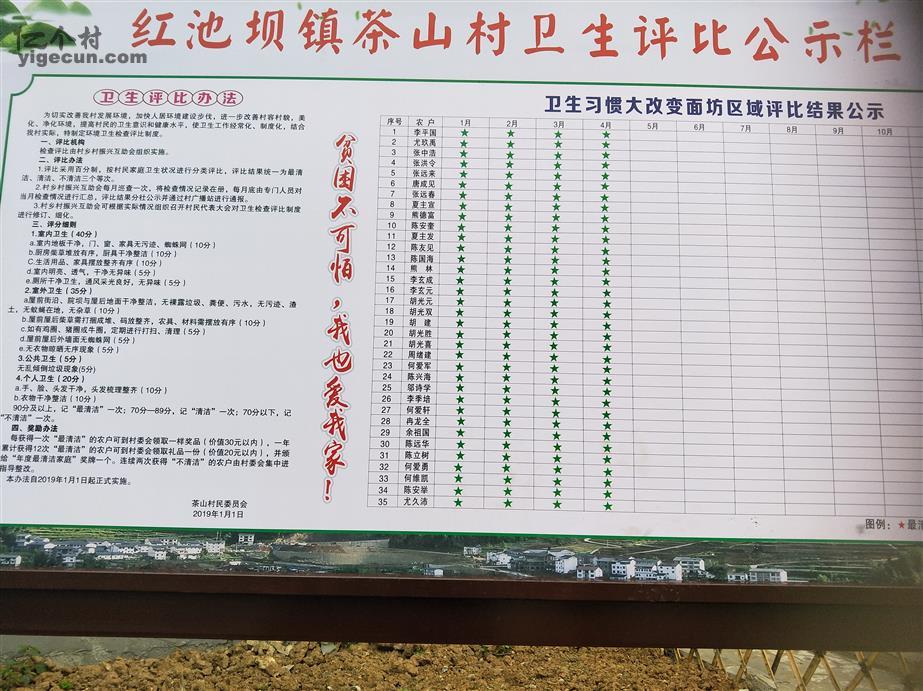 亿个村
yigecun.com
红池坝镇茶山村卫生评比公示栏
卫生评比办法
为切实改善我村发展环境，加快人居环境建设步伐，进一步改善村容村貌，美
化、净化环境，提高村民的卫生意识和健康水平，使卫生工作经常化、制度化，结合
我村实际，特制定环境卫生检查评比制度。
一、评比机构
检查评比由村乡村振兴互助会组织实施。
二、评比办法
1.评比采用百分制，按村民家庭卫生状况进行分类评比，评比结果统一为最清
洁、清洁、不清洁三个等次。
2.村乡村振兴互助会每月巡查一次，将检查情况记录在册，每月底由专门人员对
当月检查情况进行汇总，评比结果分社公示并通过村广播站进行通报。
3.村乡村振兴互助会可根据实际情况组织召开村民代表大会对卫生检查评比制度
进行修订、细化。
三、评分细则
1.室内卫生（40分）
a.室内地板干净，门、窗、家具无污迹、蜘蛛网（10分）
b.厨房柴草堆放有序，厨具干净整洁（10分）
C.生活用品、家具摆放整齐有序（10分）
d.室内明亮、透气，干净无异味（5分）
e.厕所干净卫生，通风采光良好，无异味（5分）
2.室外卫生（35分）
a.屋前街沿、院坝与屋后地面干净整洁，无裸露垃圾、粪便、污水，无污迹、渣
土，无蚊蝇在地，无杂草（10分）
b.屋前屋后柴草需打捆成堆、码放整齐，农具、材料需摆放有序（10分）
c.如有鸡圈、猪圈或牛圈，定期进行打扫、清理（5分）
d.屋前屋后外墙面无蜘蛛网（5分）
e.无衣物晾晒无序现象（5分）
3.公共卫生（5分）
无乱倾倒垃圾现象(5分)
4.个人卫生（20分）
a.手、脸、头发干净，头发梳理整齐（10分）
b.衣物干净整洁（10分）
90分及以上，记“最清洁”一次；70分—89分，记“清洁”一次；70分以下，记
“不清洁”一次。
四、奖励办法
每获得一次“最清洁”的农户可到村委会领取一样奖品（价值30元以内），一年
累计获得12次“最清洁”的农户到村委会领取礼品一份（价值20元以内），并颁
给“年度最清洁家庭”奖牌一个。连续两次获得“不清洁”的农户由村委会集中进
指导整改。
本办法自2019年1月1日起正式实施。
茶山村民委员会
2019年1月1日
贫困不可怕，我也爱我家！
卫生习惯大改变面坊区域评比结果公示
序号 农户 1月 2月 3月 4月 5月 6月 7月 8月 9月 10月
1 李平国 ★ ★ ★ ★
2 尤玖禹 ★ ★ ★ ★
3 张中浩 ★ ★ ★ ★
4 张洪令 ★ ★ ★ ★
5 张远来 ★ ★ ★ ★
6 唐成见 ★ ★ ★ ★
7 张远春 ★ ★ ★ ★
8 夏主宣 ★ ★ ★ ★
9 熊德富 ★ ★ ★ ★
10 陈安奎 ★ ★ ★ ★
11 夏主发 ★ ★ ★ ★
12 陈友见 ★ ★ ★ ★
13 陈国海 ★ ★ ★ ★
14 熊林 ★ ★ ★ ★
15 李玄成 ★ ★ ★ ★
16 李玄元 ★ ★ ★ ★
17 胡光元 ★ ★ ★ ★
18 胡光双 ★ ★ ★ ★
19 胡建 ★ ★ ★ ★
20 胡光胜 ★ ★ ★ ★
21 胡光喜 ★ ★ ★ ★
22 周绪建 ★ ★ ★ ★
23 何爱军 ★ ★ ★ ★
24 陈兴海 ★ ★ ★ ★
25 邬诗学 ★ ★ ★ ★
26 李季培 ★ ★ ★ ★
27 何爱轩 ★ ★ ★ ★
28 冉龙全 ★ ★ ★ ★
29 余祖国 ★ ★ ★ ★
30 陈远华 ★ ★ ★ ★
31 陈立树 ★ ★ ★ ★
32 何爱勇 ★ ★ ★ ★
33 何维凯 ★ ★ ★ ★
34 陈安举 ★ ★ ★ ★
35 尤久沛 ★ ★ ★ ★
图例：★最清